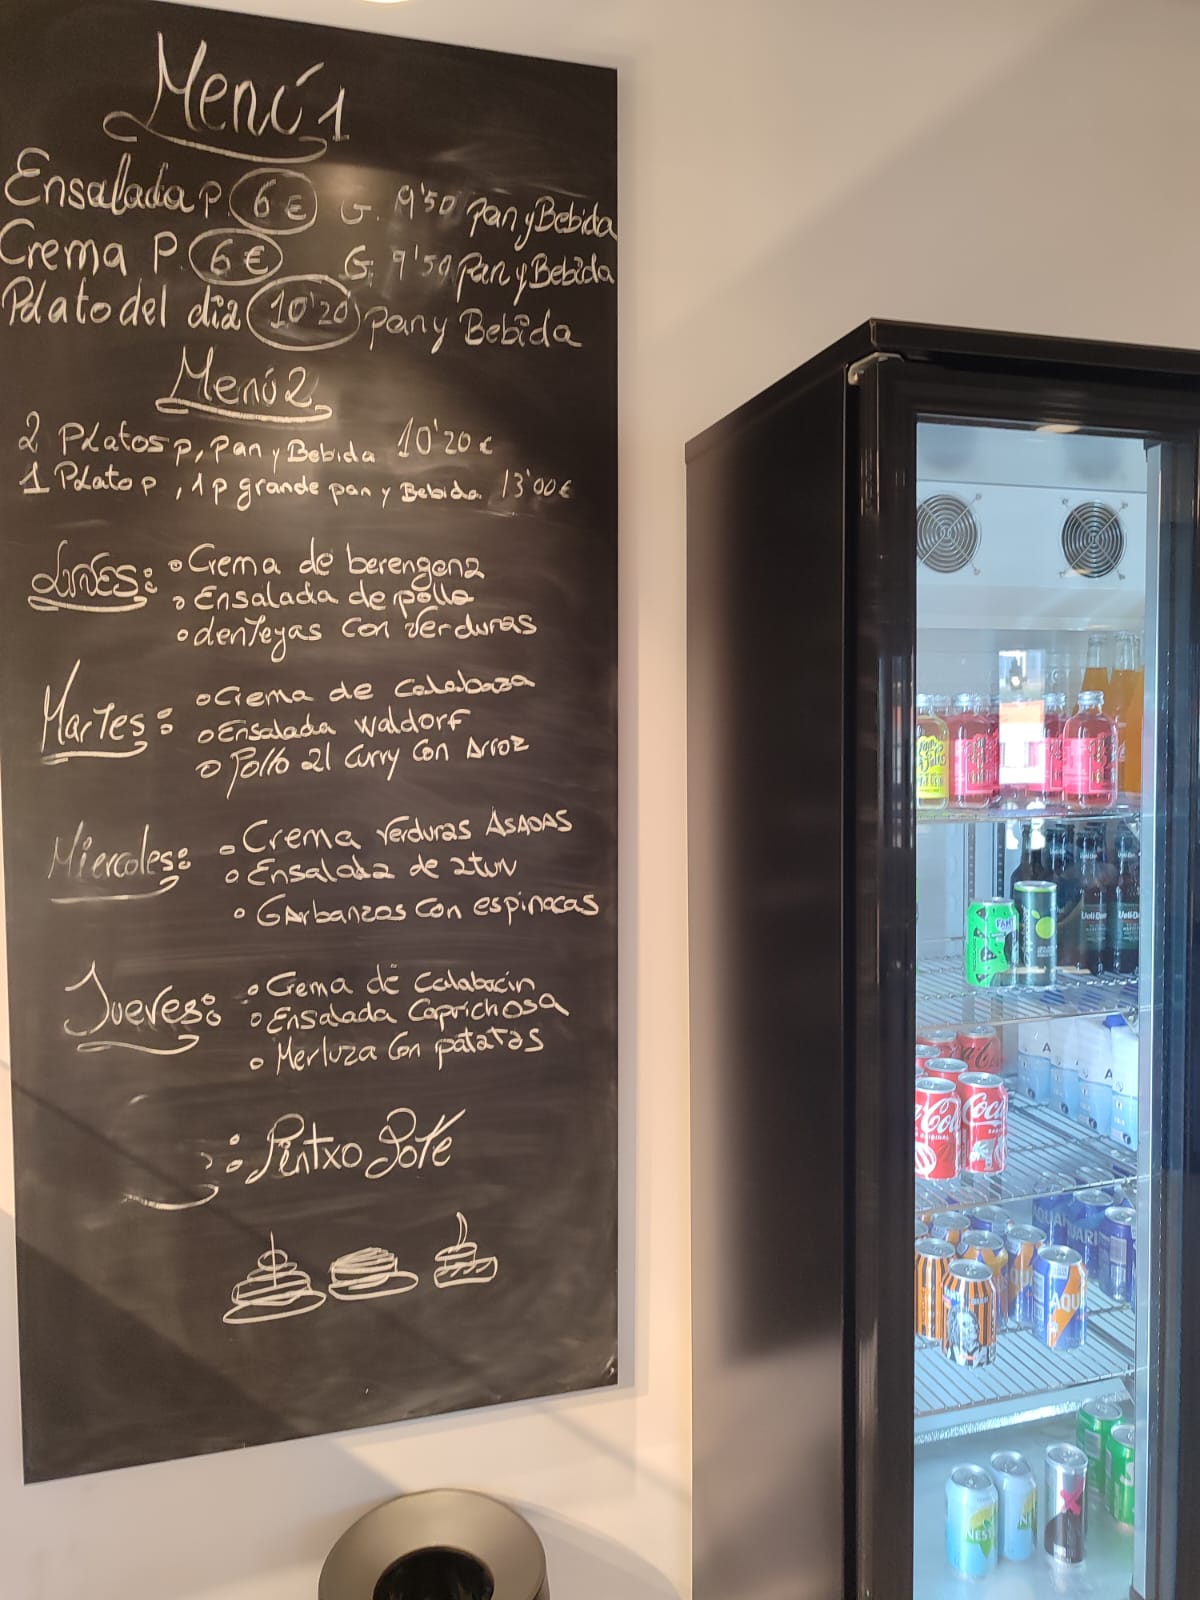 Menú 1
Ensalada P. 6 € G. 9'50 pan y Bebida
Crema P. 6 € G. 9'50 pan y Bebida
Plato del dia 10'20 pan y Bebida
Menú 2
2 Platos p, pan y Bebida 10'20 €
1 Plato p, 1 p grande pan y Bebida 13'00 €
Lunes: Crema de berengena
Ensalada de pollo
Lentejas con verduras
Martes: Crema de calabaza
Ensalada waldorf
Pollo al curry con Arroz
Miercoles: Crema verduras ASADAS
Ensalada de atun
Garbanzos con espinacas
Jueves: Crema de calabacin
Ensalada Caprichosa
Merluza con patatas
: Pintxo Pote
Coca
AQUARI
AQU
NEST